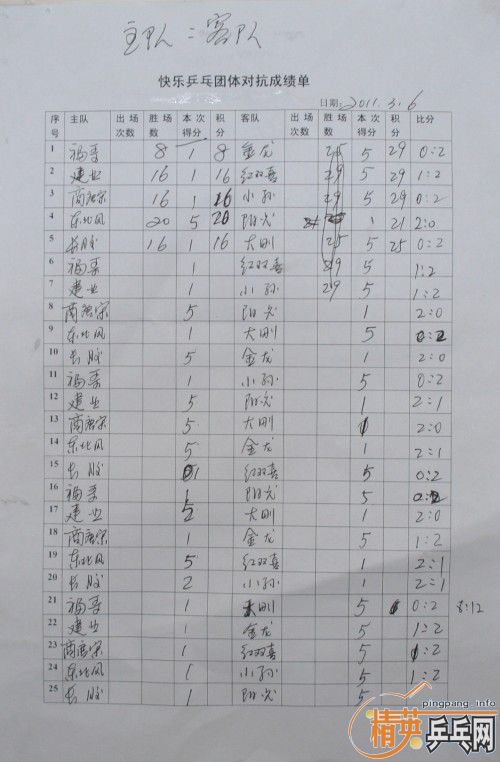 主队：客队
快乐乒乓团体对抗成绩单
日期：2011.3.6
序号 主队 出场次数 胜场数 本次得分 积分 客队 出场次数 胜场数 本次得分 积分 比分
1 福寿 8 1 8 金龙 25 5 29 0:2
2 建业 16 1 16 红双喜 29 5 29 1:2
3 商唐宗 16 1 16 小孙 29 5 29 0:2
4 东北风 20 5 20 阳光 1 21 2:0
5 长胶 16 1 16 大刚 25 5 25 0:2
6 福寿 1 红双喜 29 5 1:2
7 建业 1 小孙 29 5 1:2
8 商唐宗 5 阳光 1 2:0
9 东北风 1 大刚 5 0:2
10 长胶 5 金龙 1 2:0
11 福寿 1 小孙 5 0:2
12 建业 5 阳光 1 2:1
13 商唐宗 5 大刚 1 2:0
14 东北风 5 金龙 1 2:1
15 长胶 1 红双喜 5 0:2
16 福寿 1 阳光 5 0:2
17 建业 2 大刚 1 2:0
18 商唐宗 1 金龙 5 1:2
19 东北风 5 红双喜 1 2:1
20 长胶 2 小孙 1 2:1
21 福寿 1 大刚 5 0:2 8:12
22 建业 1 金龙 5 1:2
23 商唐宗 1 红双喜 5 :2
24 东北风 1 小孙 5 1:2
25 长胶 1 阳光 5
pingpang.info
精英乒乓网